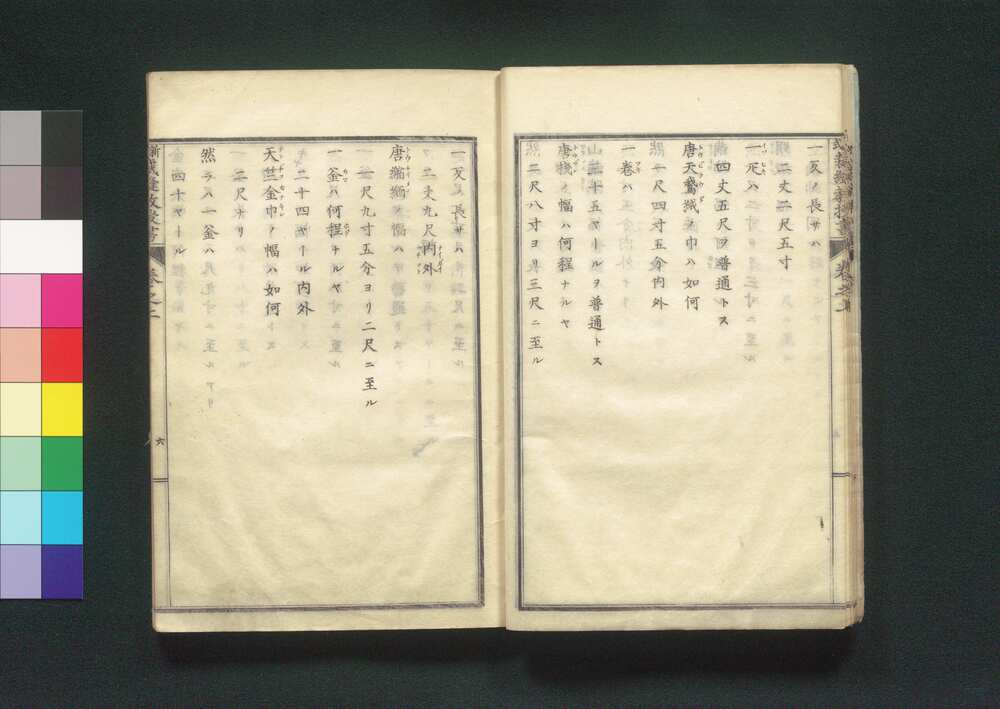 一反ノ長サハ
二丈二尺五寸
一疋ハ
四丈五尺ヲ普通トス
唐天鵞絨ノ巾ハ如何
一尺四寸五分内外
一巻ハ
三十五ヤールヲ普通トス
唐棧ノ幅ハ何程ナルヤ
二尺八寸ヨリ三尺ニ至ル
一反ノ長サハ
二丈九尺内外
唐縮緬ノ幅ハ
一尺九寸五分ヨリ二尺ニ至ル
一釜ハ何程ナルヤ
二十四ヤール内外
天竺金巾ノ幅ハ如何
二尺ナリ
然ラハ一釜ハ
四十ヤール
卷之二
六